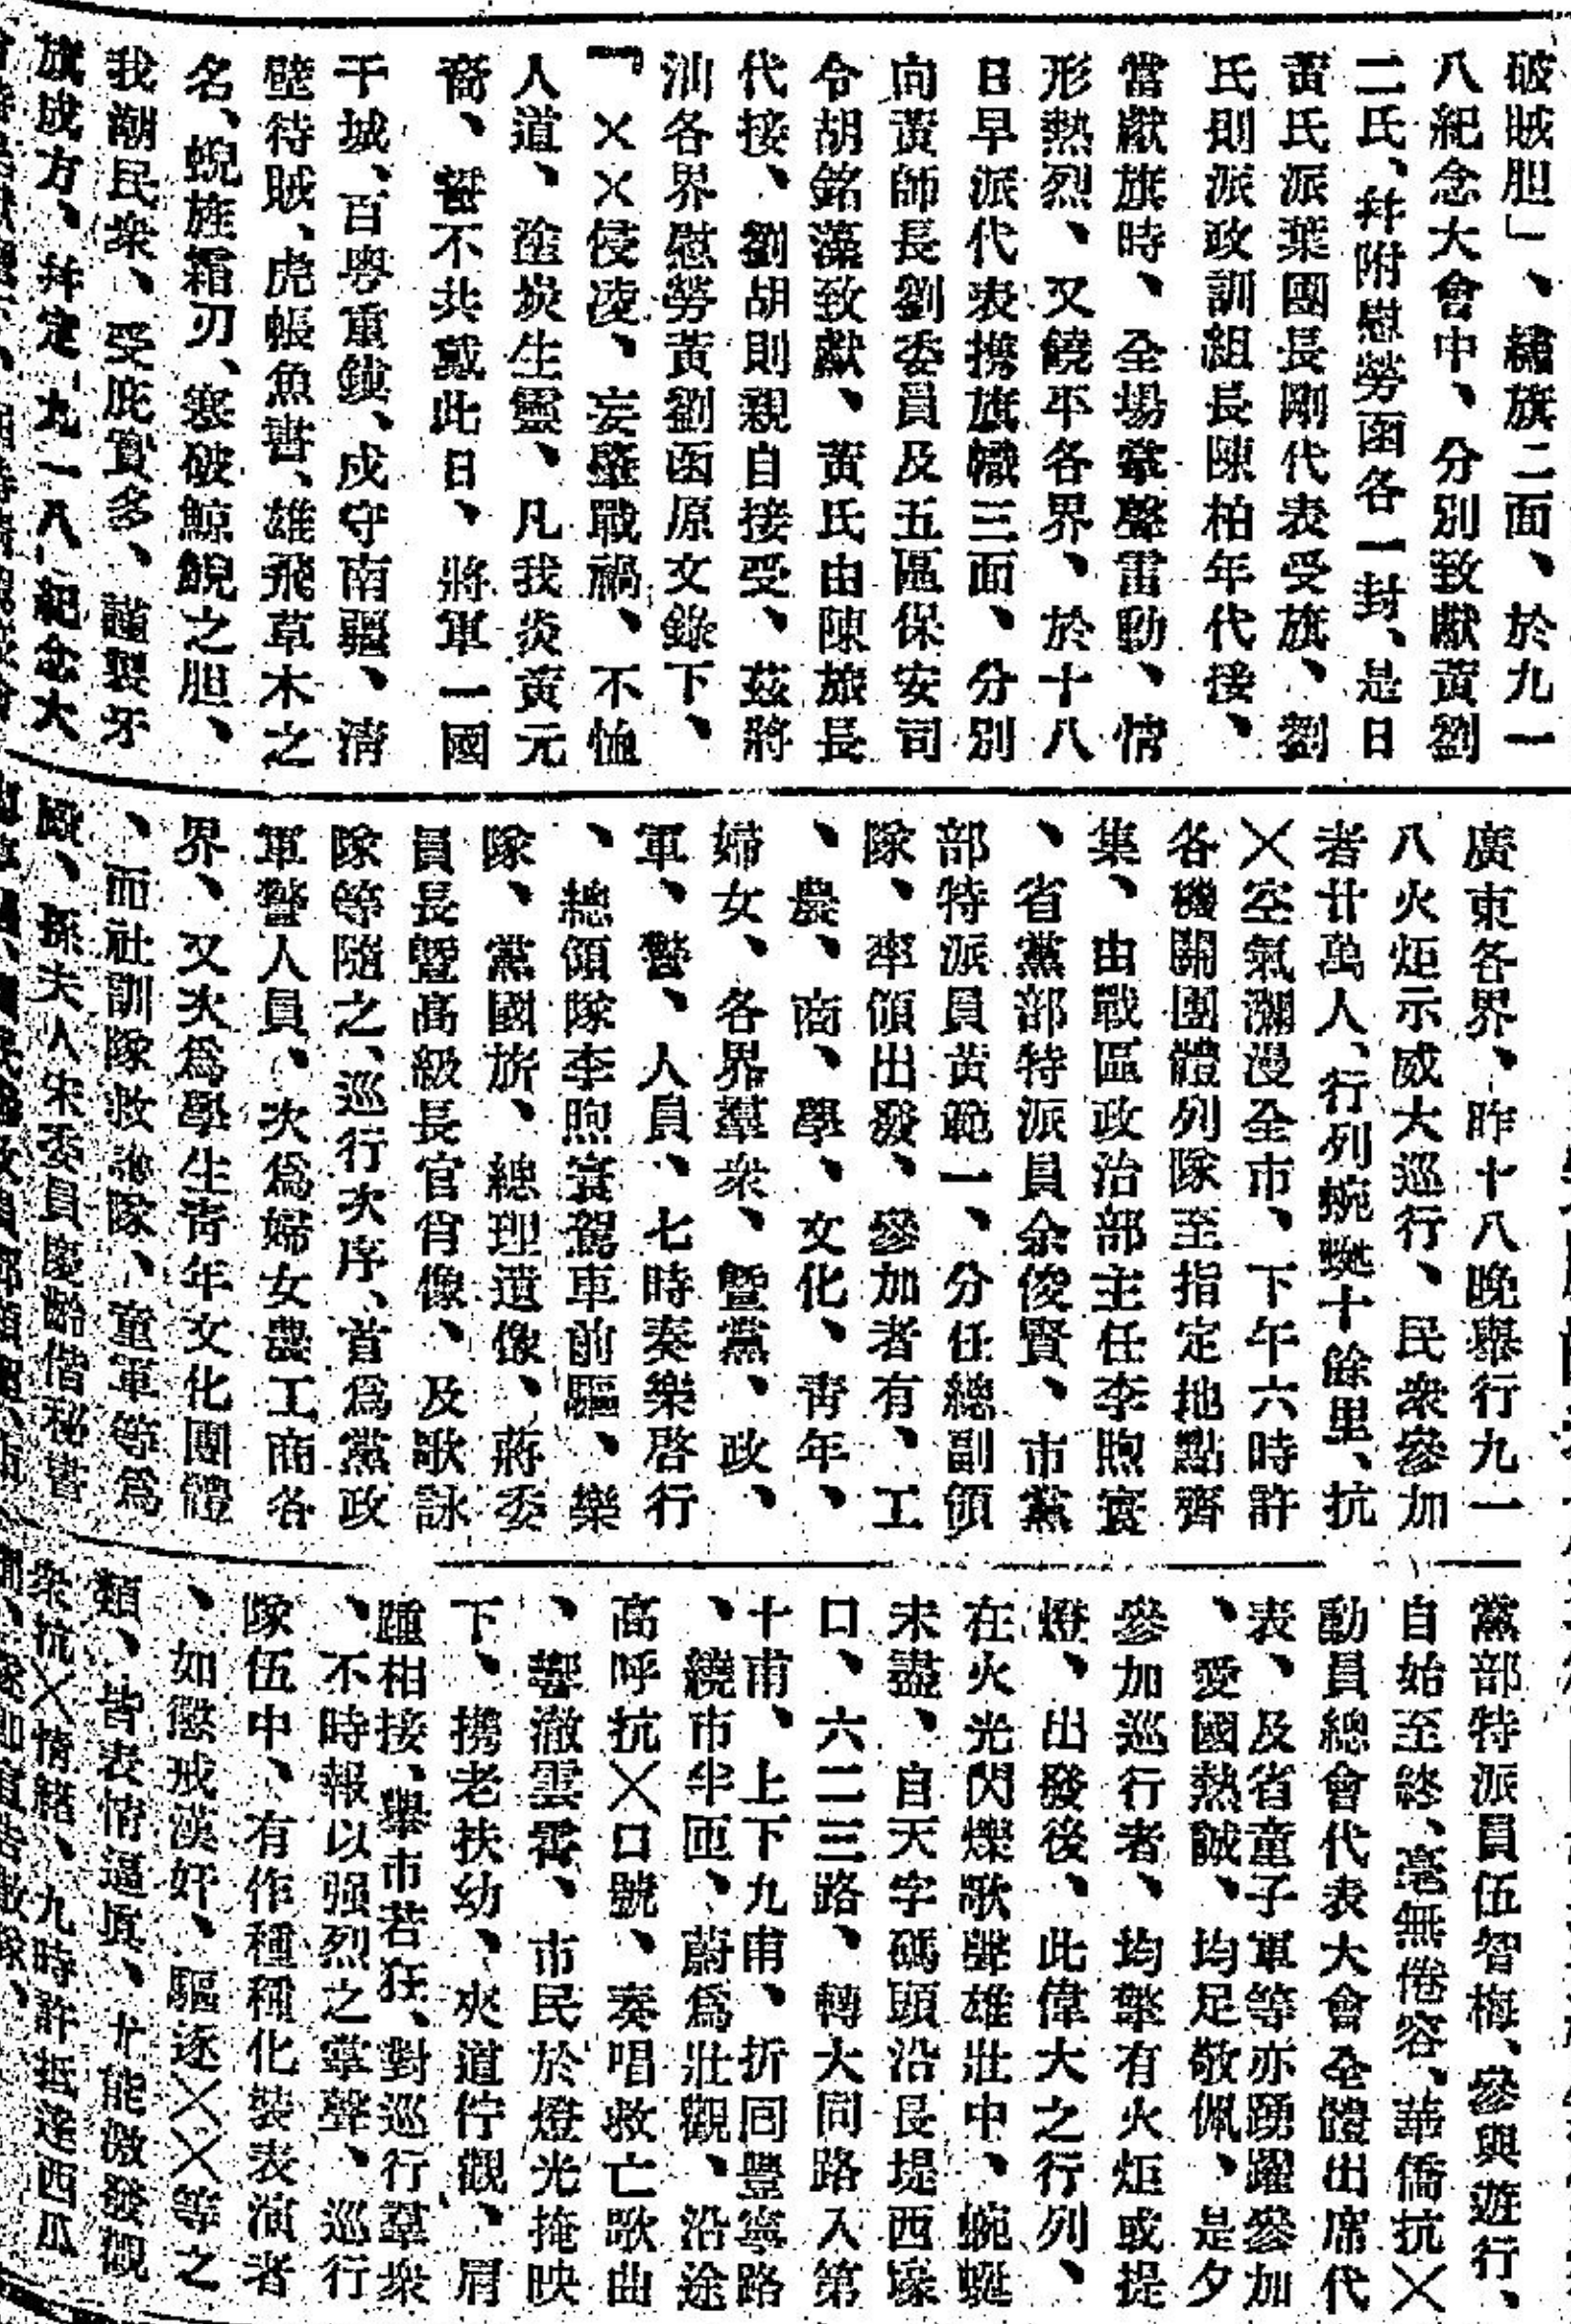 破賊胆」、繡旗二面、於九一
八紀念大會中、分別致獻黃劉
二氏、幷附慰勞函各一封、是日
黃氏派葉團長剛代表受旗、劉
氏則派政訓組長陳柏年代接、
當獻旗時、全場掌聲雷動、情
形熱烈、又饒平各界、於十八
日早派代表携旗幟三面、分別
向黃師長劉委員及五區保安司
令胡銘藻致獻、黃氏由陳旅長
代接、劉胡則親自接受、茲將
汕各界慰勞黃劉函原文錄下、
『××侵凌、妄肇戰禍、不恤
人道、塗炭生靈、凡我炎黃元
裔、誓不共戴此日、將軍一國
干城、百粵重鎮、戍守南疆、淸
壁待賊、虎帳魚書、雄飛草木之
名、蜺旌霜刃、寒破鯨鯢之胆、
我潮民衆、受庇實多、謹製牙
旗成方、幷定九一八紀念大
廣東各界、昨十八晚舉行九一
八火炬示威大巡行、民衆參加
者廿萬人、行列蜿蜒十餘里、抗
×空氣瀰漫全市、下午六時許
各機關團體列隊至指定地點齊
集、由戰區政治部主任李煦寰
、省黨部特派員余俊賢、市黨
部特派員黃範一、分任總副領
隊、率領出發、參加者有、工
、農、商、學、文化、靑年、
婦女、各界羣衆、曁黨、政、
軍、警、人員、七時奏樂啓行
、總領隊李煦寰駕車前驅、樂
隊、黨國旂、總理遺像、蔣委
員長曁高級長官肖像、及歌詠
隊等隨之、巡行次序、首爲黨政
軍警人員、次爲婦女農工商各
界、又次爲學生靑年文化團體
、而社訓隊救護隊、童軍等爲
殿、孫夫人宋委員慶齡偕秘書
黨部特派員伍智梅、參與遊行、
自始至終、毫無倦容、華僑抗×
動員總會代表大會全體出席代
表、及省童子軍等亦踴躍參加
、愛國熱誠、均足敬佩、是夕
參加巡行者、均擎有火炬或提
燈、出發後、此偉大之行列、
在火光閃爍歌聲雄壯中、蜿蜒
未盡、自天字碼頭沿長堤西濠
口、六二三路、轉大同路入第
十甫、上下九甫、折囘豐寧路
、繞市半匝、蔚爲壯觀、沿途
高呼抗×口號、奏唱救亡歌曲
、響澈雲霄、市民於燈光掩映
下、携老扶幼、夾道佇觀、肩
踵相接、舉市若狂、對巡行羣衆
、不時報以强烈之掌聲、巡行
隊伍中、有作種種化裝表演者
、如懲戒漢奸、驅逐××等之
類、皆表情逼眞、尤能激發觀
衆抗×情緒、九時許抵達西瓜